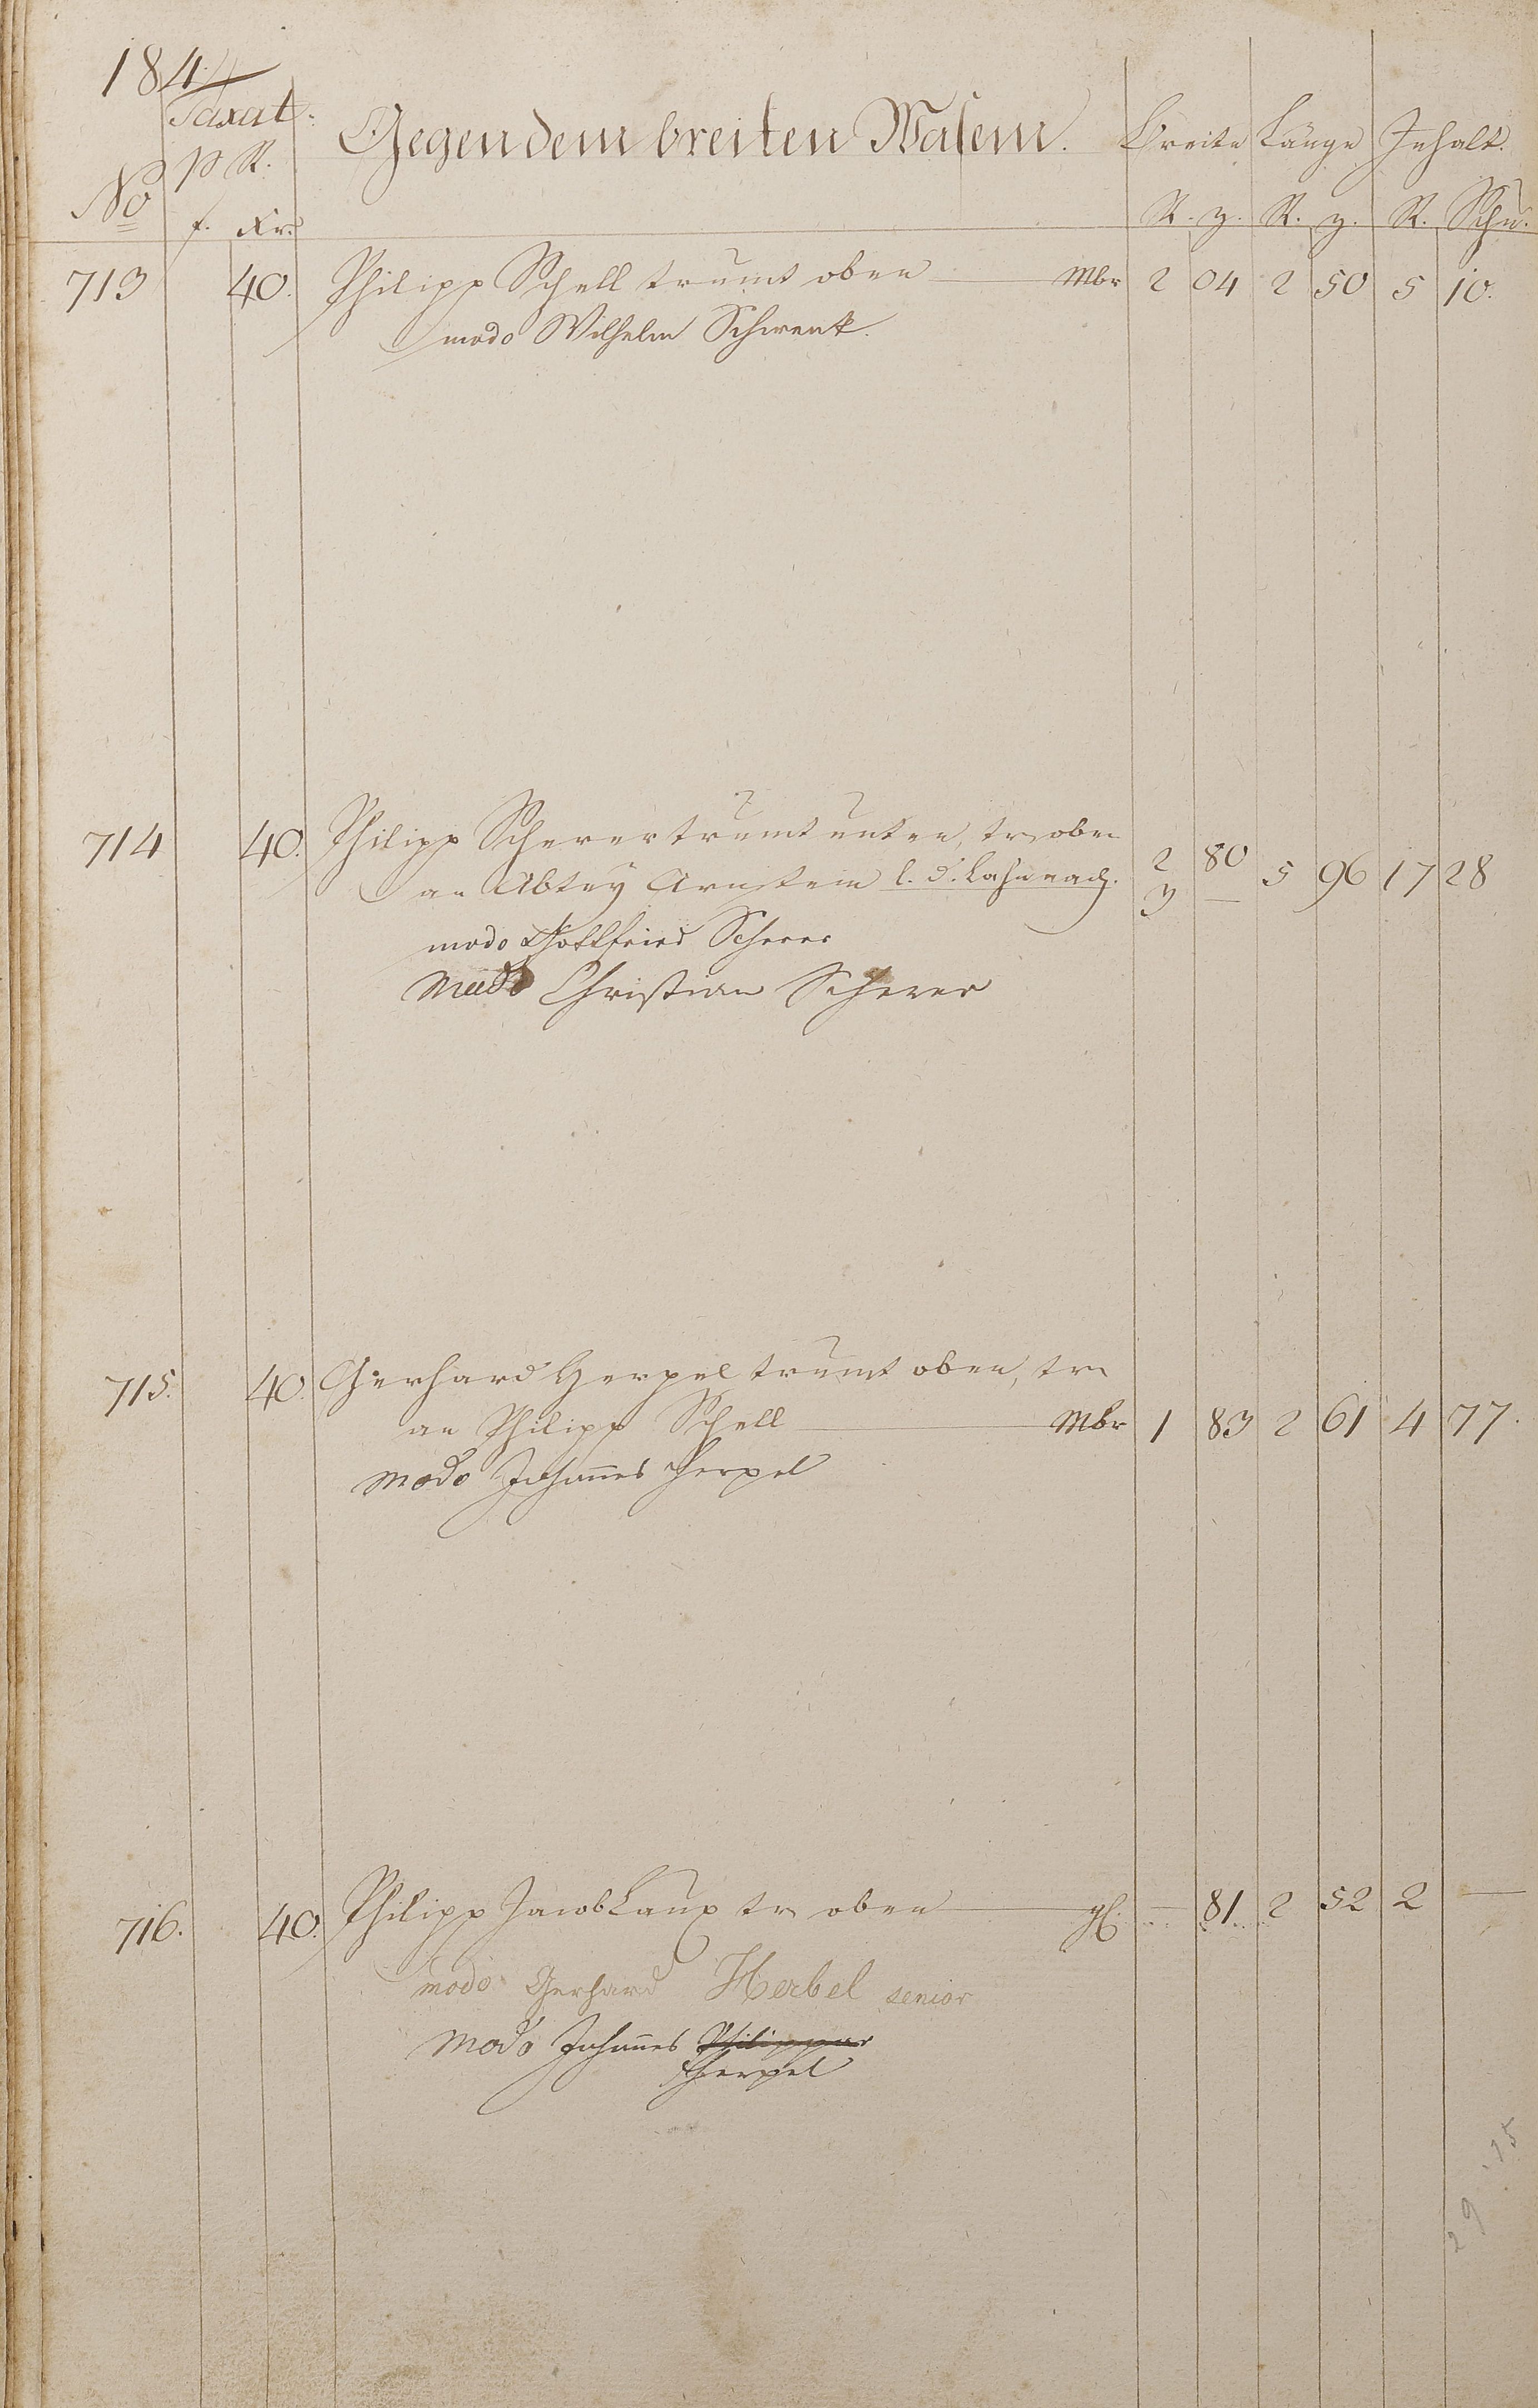 184
Taxat.
p R.
No f. Xr.
Gegen dem breiten Wasem. Breite Länge Inhalt.
R. z. R. z. R. Schu.
713 40. Philipp Schell trumt oben Mbr 2 04 2 50 5 10.
modo Wilhelm Schwenk.
714 40. Philipp Scherer trumt unten, tr. oben 2 80 5 96 17 28
an Abtey Arnstein l. d. Lahn nach. 3 —
modo Gottfried Scherer
modo Christian Scherer
715. 40. Gerhard Herpel trumt oben, tr.
an Philipp Schell Mbr 1 83 2 61 4 77.
modo Johannes Herpel
716. 40. Philipp Jacob Laux tr. oben gl. — 81 2 52 2 —
modo Gerhard Herbel senior
modo Johannes Philippar
Herpel
29 15